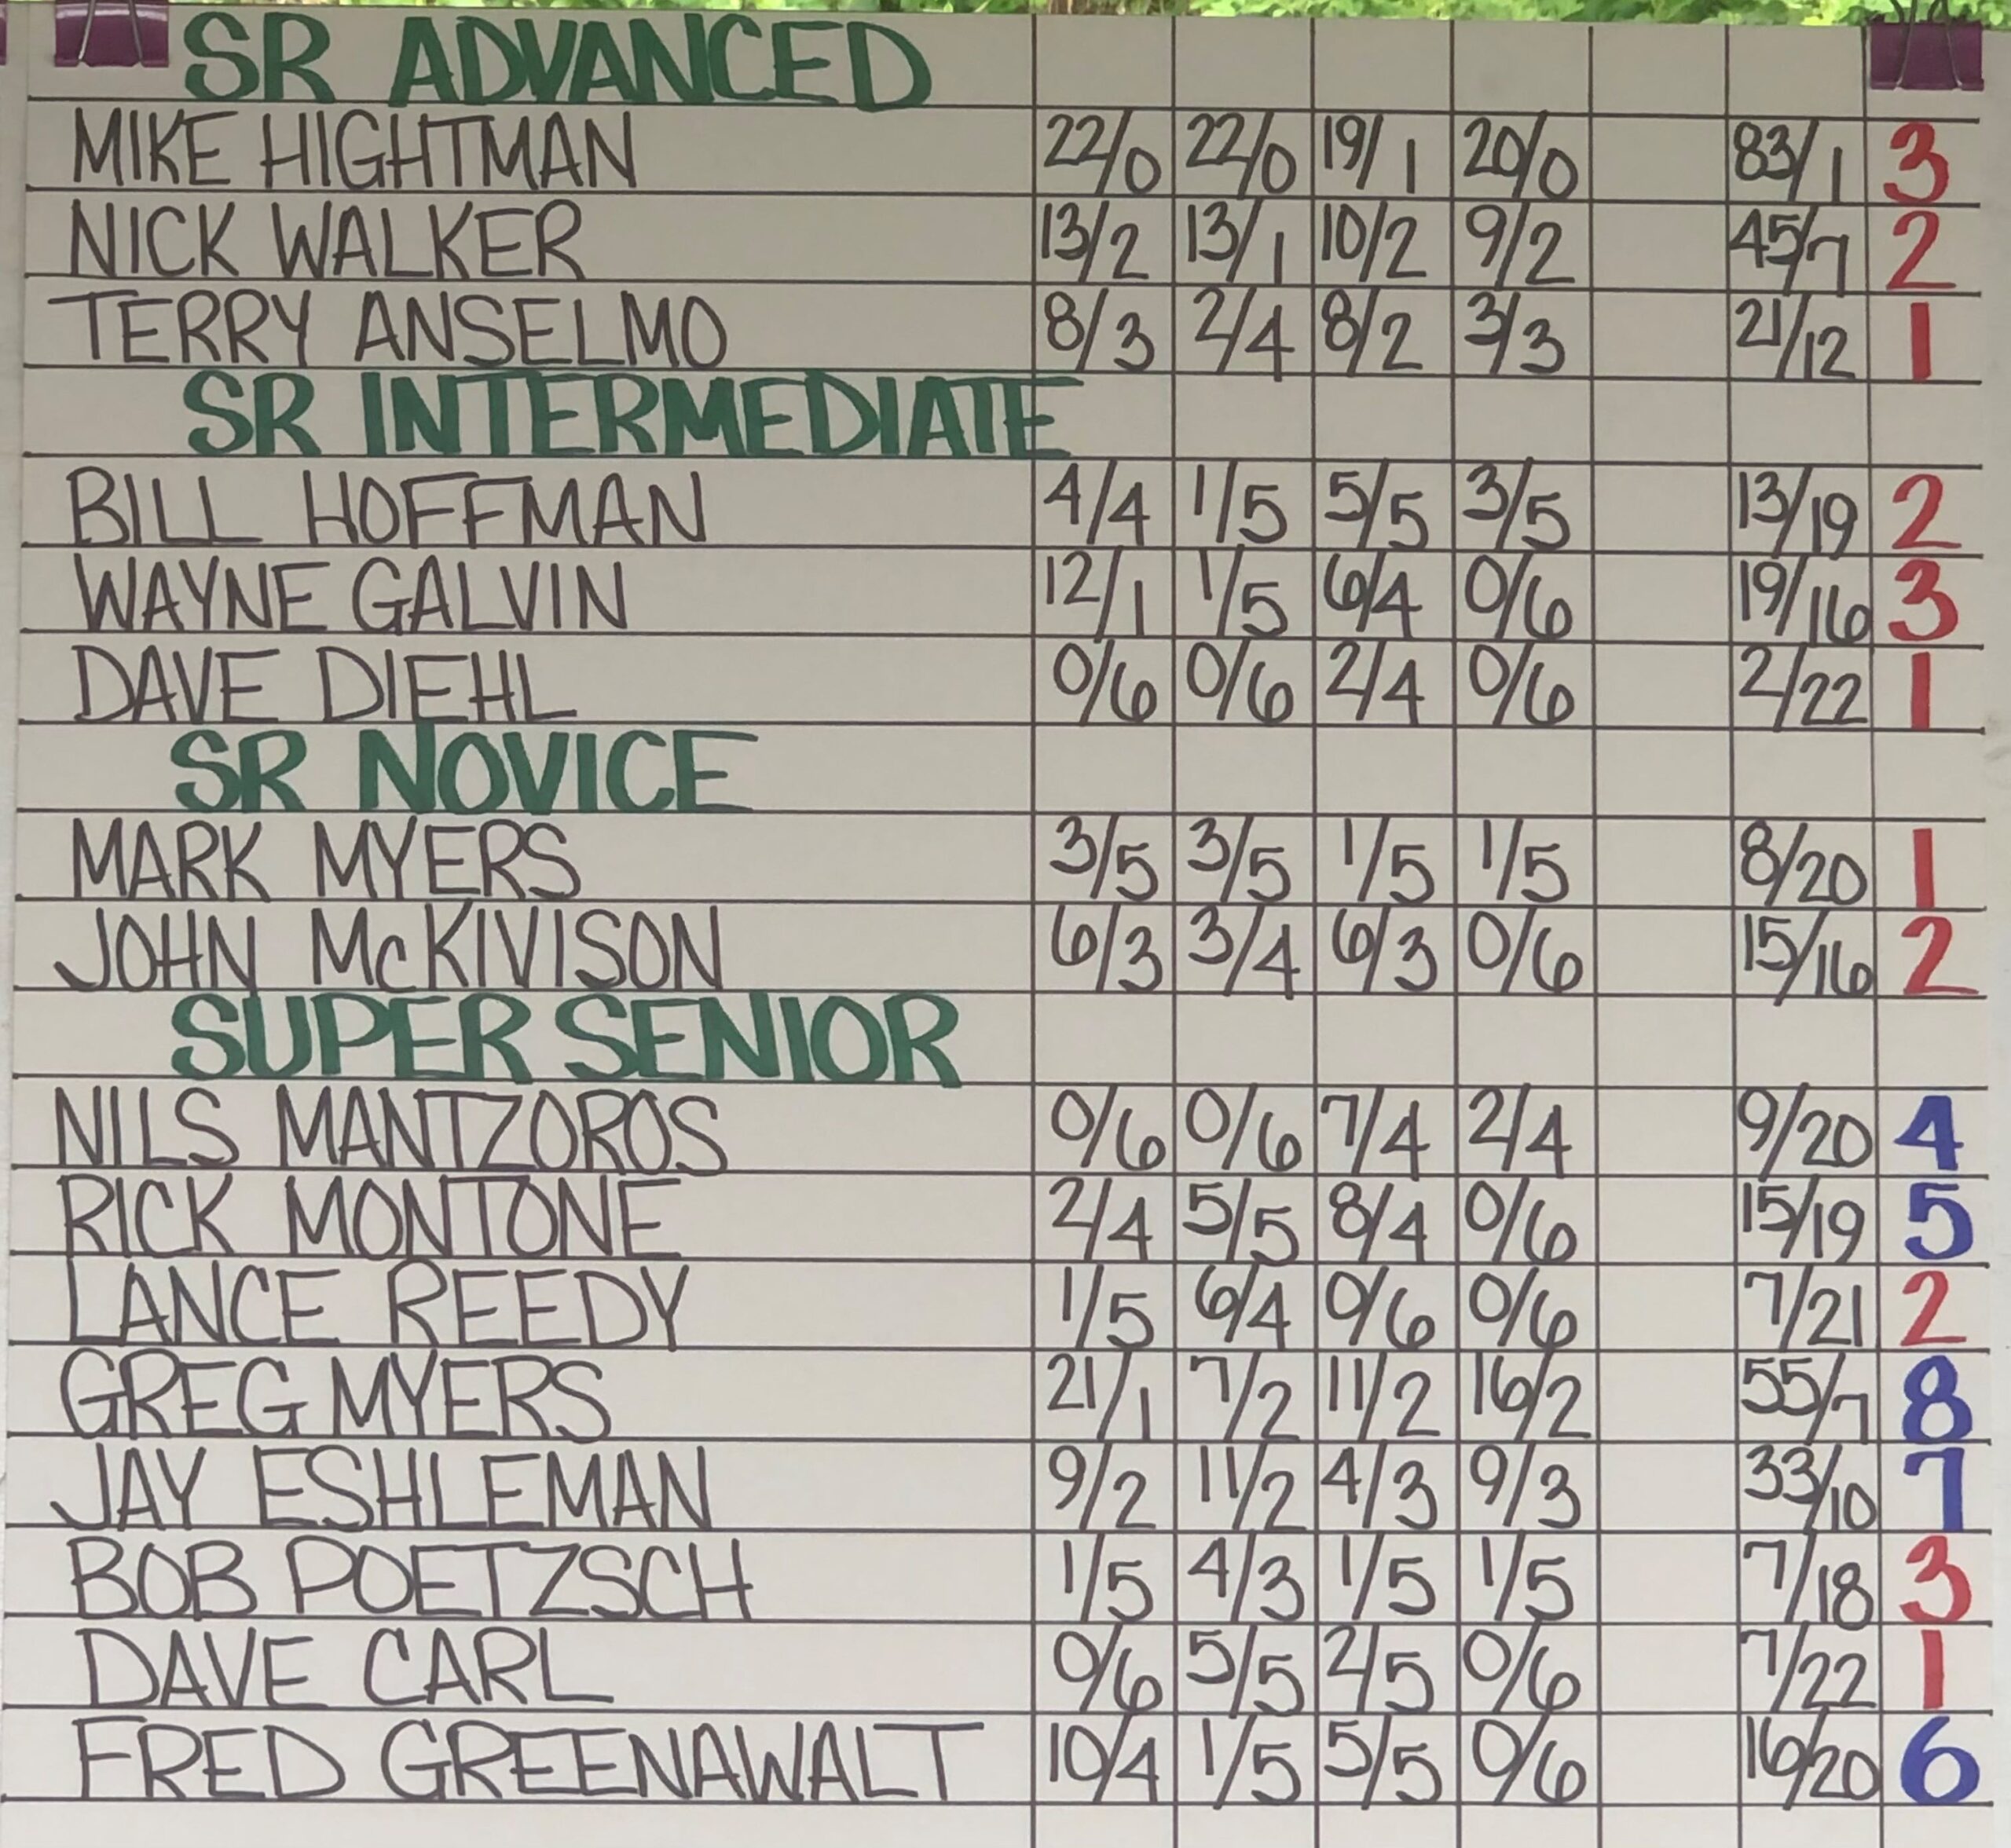 SR ADVANCED
MIKE HIGHTMAN 22/0 22/0 19/1 20/0 83/1 3
NICK WALKER 13/2 13/1 10/2 9/2 45/7 2
TERRY ANSELMO 8/3 2/4 8/2 3/3 21/12 1
SR INTERMEDIATE
BILL HOFFMAN 4/4 1/5 5/5 3/5 13/19 2
WAYNE GALVIN 12/1 1/5 6/4 0/6 19/16 3
DAVE DIEHL 0/6 0/6 2/4 0/6 2/22 1
SR NOVICE
MARK MYERS 3/5 3/5 1/5 1/5 8/20 1
JOHN McKIVISON 6/3 3/4 6/3 0/6 15/16 2
SUPER SENIOR
NILS MANTZOROS 0/6 0/6 7/4 2/4 9/20 4
RICK MONTONE 2/4 5/5 8/4 0/6 15/19 5
LANCE REEDY 1/5 6/4 0/6 0/6 7/21 2
GREG MYERS 21/1 7/2 11/2 16/2 55/7 8
JAY ESHLEMAN 9/2 11/2 4/3 9/3 33/10 7
BOB POETZSCH 1/5 4/3 1/5 1/5 7/18 3
DAVE CARL 0/6 5/5 2/5 0/6 7/22 1
FRED GREENAWALT 10/4 1/5 5/5 0/6 16/20 6